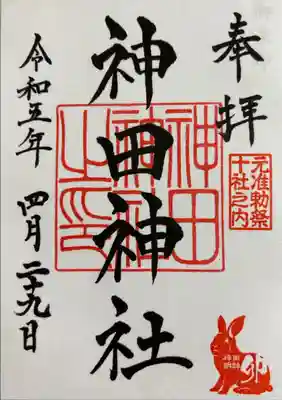 奉拝
元准勅祭
十社之内
神田神社
神田
神社
之印
令和五年 四月二十九日
卯